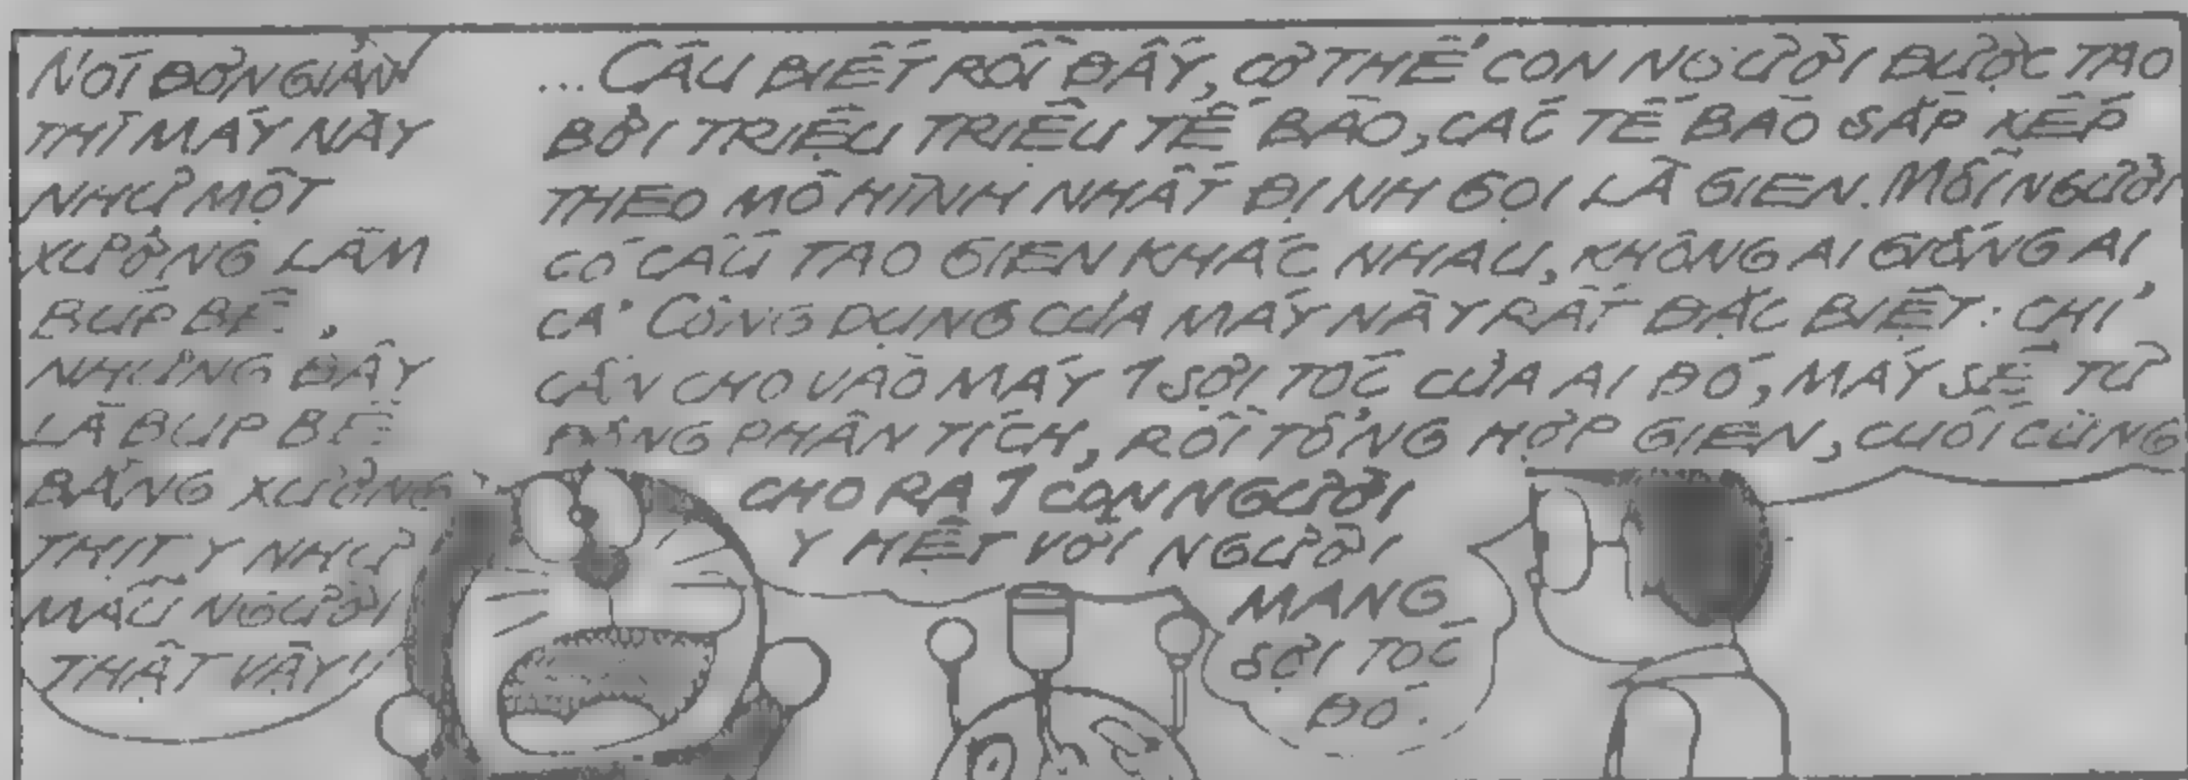 NÓI ĐƠN GIẢN
THÌ MÁY NÀY
NHƯ MỘT
XƯỞNG LÀM
BÚP BÊ,
NHƯNG ĐÂY
LÀ BÚP BÊ
BẰNG XƯƠNG
THỊT Y NHƯ
MẪU NGƯỜI
THẬT VẬY!!
...CẬU BIẾT RỒI ĐẤY, CƠ THỂ CON NGƯỜI ĐƯỢC TẠO
BỞI TRIỆU TRIỆU TẾ BÀO, CÁC TẾ BÀO SẮP XẾP
THEO MÔ HÌNH NHẤT ĐỊNH GỌI LÀ GIEN. MỖI NGƯỜI
CÓ CẤU TẠO GIEN KHÁC NHAU, KHÔNG AI GIỐNG AI
CẢ. CÔNG DỤNG CỦA MÁY NÀY RẤT ĐẶC BIỆT: CHỈ
CẦN CHO VÀO MÁY 1 SỢI TÓC CỦA AI ĐÓ, MÁY SẼ TỰ
ĐỘNG PHÂN TÍCH, RỒI TỔNG HỢP GIEN, CUỐI CÙNG
CHO RA 1 CON NGƯỜI
Y HỆT VỚI NGƯỜI
MANG
SỢI TÓC
ĐÓ.